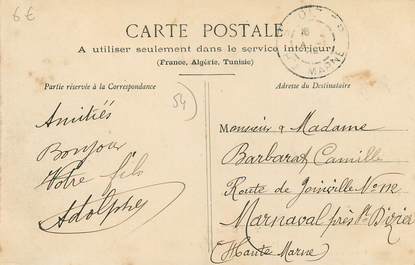 6€
CARTE POSTALE
A utiliser seulement dans le service intérieur
(France, Algérie, Tunisie)
Partie réservée à la Correspondance
Adresse du Destinataire
54
Amitiés
Bonjour
Votre fils
Adolphe
Monsieur & Madame
Barbarat Camille
Route de Joinville
Marnaval près St Dizier
Haute Marne
MARNE